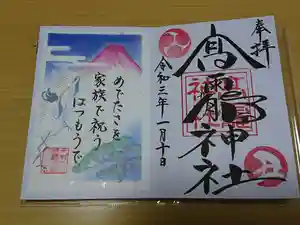 奉拝
髙龗神社
令和三年一月十日
めでたさを
家族で祝う
はつもうで